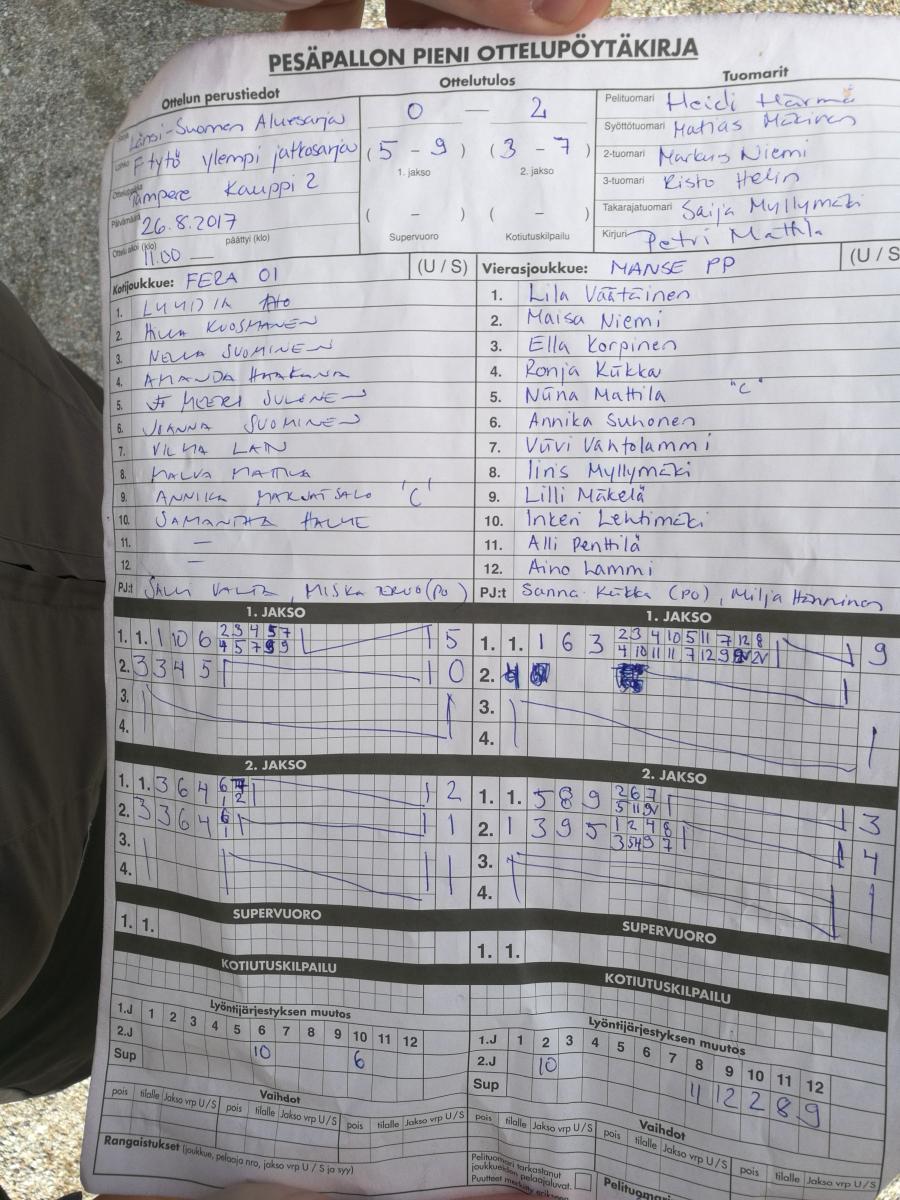 PESÄPALLON PIENI OTTELUPÖYTÄKIRJA
Ottelun perustiedot
Länsi-Suomen Aluesarja
F-tytö ylempi jatkosarja
Tampere Kauppi 2
Päivämäärä 26.8.2017
Ottelu alkoi (klo) 11.00 — päättyi (klo)
Ottelutulos
0 — 2
(5 - 9) (3 - 7)
1. jakso 2. jakso
( - ) ( - )
Supervuoro Kotiutuskilpailu
Tuomarit
Pelituomari Heidi Härmä
Syöttötuomari Matias Mäkinen
2-tuomari Markus Niemi
3-tuomari Risto Helin
Takarajatuomari Saija Myllymäki
Kirjuri Petri Mattila
Kotijoukkue: FERA 01 (U / S)
1. AHO
2. HILLA KUOSMANEN
3. NELLA SUOMINEN
4. AMANDA
5. MEERI
6. JOANNA SUOMINEN
7. VILMA
8. MALVA MATTILA
9. ANNIKA "C"
10. SAMANTHA HALME
11. —
12. —
PJ:t MISKA (PO)
Vierasjoukkue: MANSE PP (U / S
1. Lila Väätäinen
2. Maisa Niemi
3. Ella Korpinen
4. Ronja Kukka
5. Niina Mattila "C"
6. Annika Suhonen
7. Viivi Vahtolammi
8. Iiris Myllymäki
9. Lilli Mäkelä
10. Inkeri Lehtimäki
11. Alli Penttilä
12. Aino Lammi
PJ:t Sanna Kukka (PO), Milja Hänninen
1. JAKSO
1. 1. 1 10 6 2 3 4 5 7 5
2. 3 3 4 5 0
3.
4.
1. JAKSO
1. 1. 1 6 3 2 3 4 10 5 11 7 12 8 9
2.
3.
4.
2. JAKSO
1. 1. 3 6 4 2
2. 3 3 6 4 6 1 1
3.
4.
2. JAKSO
1. 1. 5 8 9 2 6 7 3
2. 1 3 9 5 1 2 4 8 4
3.
4.
SUPERVUORO
1. 1.
SUPERVUORO
1. 1.
KOTIUTUSKILPAILU
KOTIUTUSKILPAILU
Lyöntijärjestyksen muutos
1.J 1 2 3 4 5 6 7 8 9 10 11 12
2.J 10 6
Sup
Lyöntijärjestyksen muutos
1.J 1 2 3 4 5 6 7 8 9 10 11 12
2.J 10 11 12 2 8 9
Sup
Vaihdot
pois tilalle Jakso vrp U / S pois tilalle Jakso vrp U / S pois tilalle Jakso vrp U / S
Vaihdot
pois tilalle Jakso vrp U / S pois tilalle Jakso vrp U / S pois tilalle Jakso vrp U / S
Rangaistukset (joukkue, pelaaja nro, jakso vrp U / S ja syy)
Pelituomari tarkastanut
joukkueiden pelaajaluvat.
Puutteet merkitty